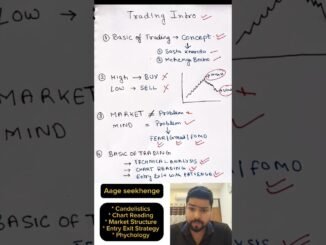 Trading Intro
① Basic of Trading → Concept
① Sasta kharido
② Mehenga Becho
② High → BUY ✗
LOW → SELL ✗
③ MARKET ≠ Problem
MIND = Problem
FEAR/Greed/FOMO
④ BASIC OF TRADING
→ TECHNICAL ANALYSIS
→ CHART READING
→ Entry Exit with PATIENCE
Aage seekhenge
* Candelistics
* Chart Reading
* Market Structure
* Entry Exit Strategy
* Phychology
LOW →
MARKET
MIND
/FOMO
BASIC OF